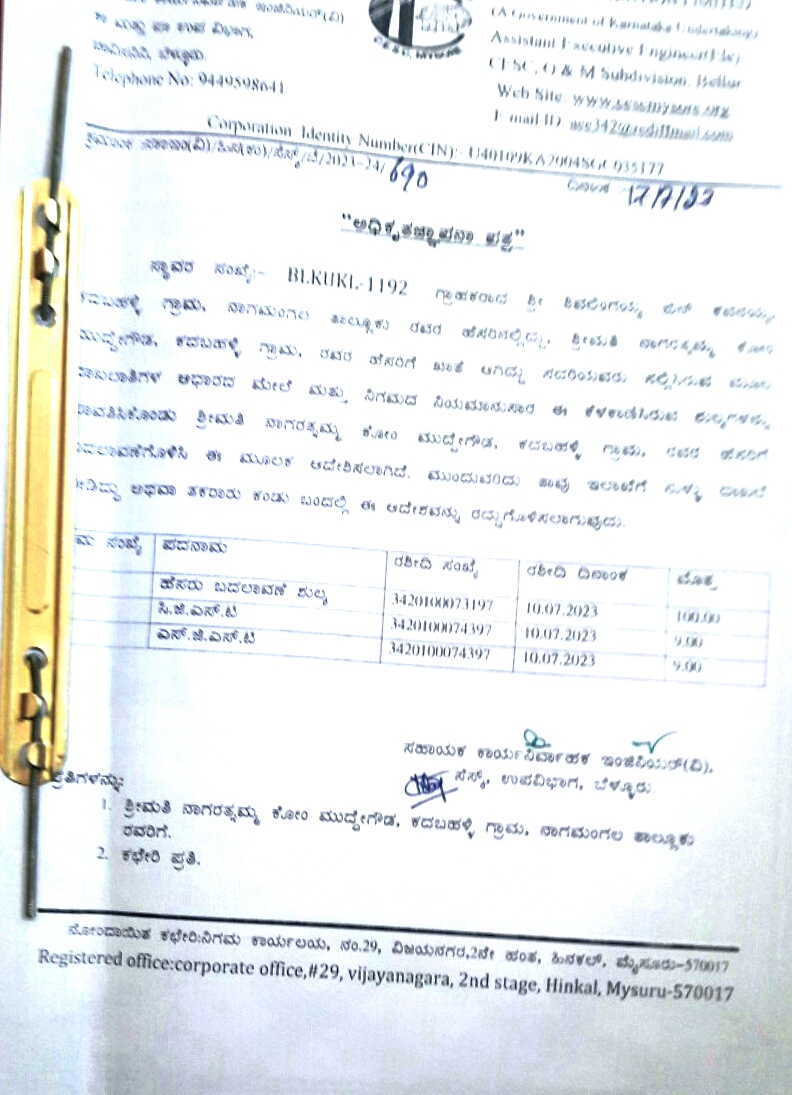 (A Government of Karnataka Undertaking)
ಕಾ ಮತ್ತು ಪಾ ಉಪ ವಿಭಾಗ,
Assistant Executive Engineer(Ele)
ಚಾವಿಸನಿನಿ, ಬೆಳ್ಳೂರು.
CESC, O & M Subdivision, Bellur
Telephone No: 9449598641
Web Site: www.
E mail ID
Corporation Identity Number(CIN):- U40109KA2004SGC035177
2023-24/690
ದಿನಾಂಕ 17/7/23
"ಅಧಿಕೃತಜ್ಞಾಪನಾ ಪತ್ರ"
ಸ್ಥಾವರ ಸಂಖ್ಯೆ:- BLKUKL-1192 ಗ್ರಾಹಕರಾದ ಶ್ರೀ ಶಿವಲಿಂಗಯ್ಯ ಬಿನ್
ಕದಬಹಳ್ಳಿ ಗ್ರಾಮ, ನಾಗಮಂಗಲ ತಾಲ್ಲೂಕು ರವರ ಹೆಸರಿನಲ್ಲಿದ್ದು, ಶ್ರೀಮತಿ ನಾಗರತ್ನಮ್ಮ ಕೋಂ
ಮುದ್ದೇಗೌಡ, ಕದಬಹಳ್ಳಿ ಗ್ರಾಮ, ರವರ ಹೆಸರಿಗೆ ಖಾತೆ ಆಗಿದ್ದು ಸದರಿಯವರು ಸಲ್ಲಿಸಿರುವ ಮೂಲ
ದಾಖಲಾತಿಗಳ ಆಧಾರದ ಮೇಲೆ ಮತ್ತು ನಿಗಮದ ನಿಯಮಾನುಸಾರ ಈ ಕೆಳಕಾಣಿಸಿರುವ ಶುಲ್ಕಗಳನ್ನು
ಪಾವತಿಸಿಕೊಂಡು ಶ್ರೀಮತಿ ನಾಗರತ್ನಮ್ಮ ಕೋಂ ಮುದ್ದೇಗೌಡ, ಕದಬಹಳ್ಳಿ ಗ್ರಾಮ, ರವರ ಹೆಸರಿಗೆ
ಬದಲಾವಣೆಗೊಳಿಸಿ ಈ ಮೂಲಕ ಆದೇಶಿಸಲಾಗಿದೆ. ಮುಂದುವರಿದು ತಾವು ಇಲಾಖೆಗೆ ಸುಳ್ಳು ದಾಖಲೆ
ನೀಡಿದ್ದು ಅಥವಾ ತಕರಾರು ಕಂಡು ಬಂದಲ್ಲಿ ಈ ಆದೇಶವನ್ನು ರದ್ದುಗೊಳಿಸಲಾಗುವುದು.
ಮ ಸಂಖ್ಯೆ ಪದನಾಮ ರಶೀದಿ ಸಂಖ್ಯೆ ರಶೀದಿ ದಿನಾಂಕ ಮೊತ್ತ
ಹೆಸರು ಬದಲಾವಣೆ ಶುಲ್ಕ 3420100073197 10.07.2023 100.00
ಸಿ.ಜಿ.ಎಸ್.ಟಿ 3420100074397 10.07.2023 9.00
ಎಸ್.ಜಿ.ಎಸ್.ಟಿ 3420100074397 10.07.2023 9.00
ಸಹಾಯಕ ಕಾರ್ಯನಿರ್ವಾಹಕ ಇಂಜಿನಿಯರ್(ವಿ),
ಸೆಸ್ಕ್, ಉಪವಿಭಾಗ, ಬೆಳ್ಳೂರು.
ಪ್ರತಿಗಳನ್ನು:
1. ಶ್ರೀಮತಿ ನಾಗರತ್ನಮ್ಮ ಕೋಂ ಮುದ್ದೇಗೌಡ, ಕದಬಹಳ್ಳಿ ಗ್ರಾಮ, ನಾಗಮಂಗಲ ತಾಲ್ಲೂಕು
ರವರಿಗೆ.
2. ಕಛೇರಿ ಪ್ರತಿ.
ನೋಂದಾಯಿತ ಕಛೇರಿ:ನಿಗಮ ಕಾರ್ಯಲಯ, ನಂ.29, ವಿಜಯನಗರ,2ನೇ ಹಂತ, ಹಿನಕಲ್, ಮೈಸೂರು-570017
Registered office:corporate office,#29, vijayanagara, 2nd stage, Hinkal, Mysuru-570017